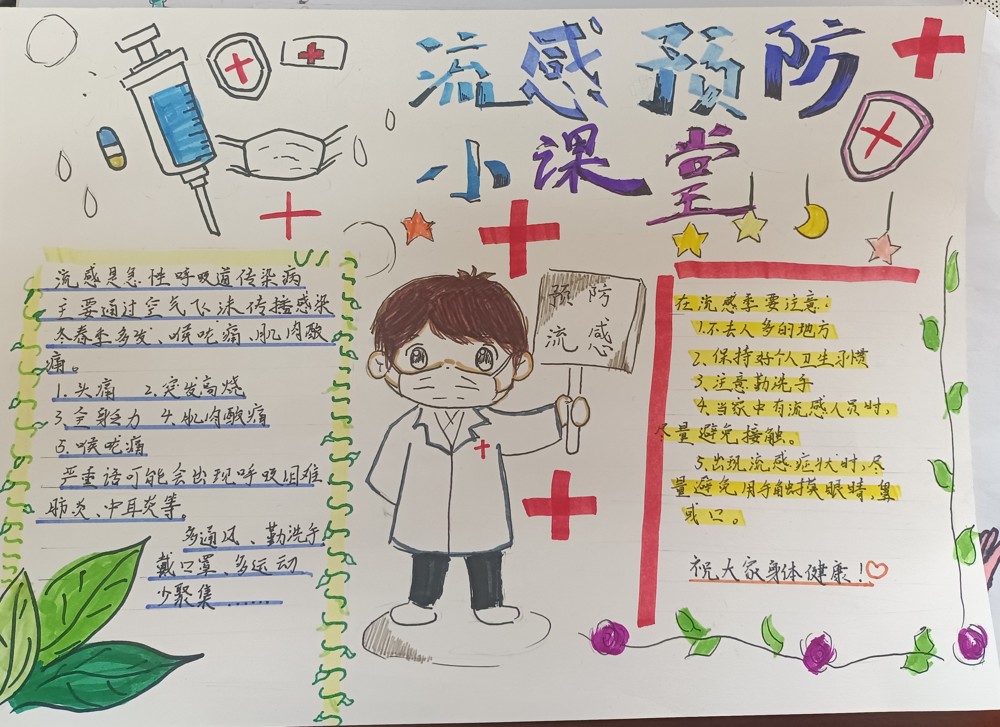 流感预防
小课堂
流感是急性呼吸道传染病
主要通过空气飞沫传播感染
冬春季多发、喉咙痛、肌肉酸
痛。
1.头痛 2.突发高烧
3.全身乏力 4.肌肉酸痛
5.喉咙痛
严重话可能会出现呼吸困难
肺炎、中耳炎等。
多通风、勤洗手
戴口罩、多运动
少聚集……
预防
流感
在流感季要注意:
1.不去人多的地方
2.保持好个人卫生习惯
3.注意勤洗手
4.当家中有流感人员时,
尽量避免接触。
5.出现流感症状时,尽
量避免用手触摸眼睛,鼻
或口。
祝大家身体健康!